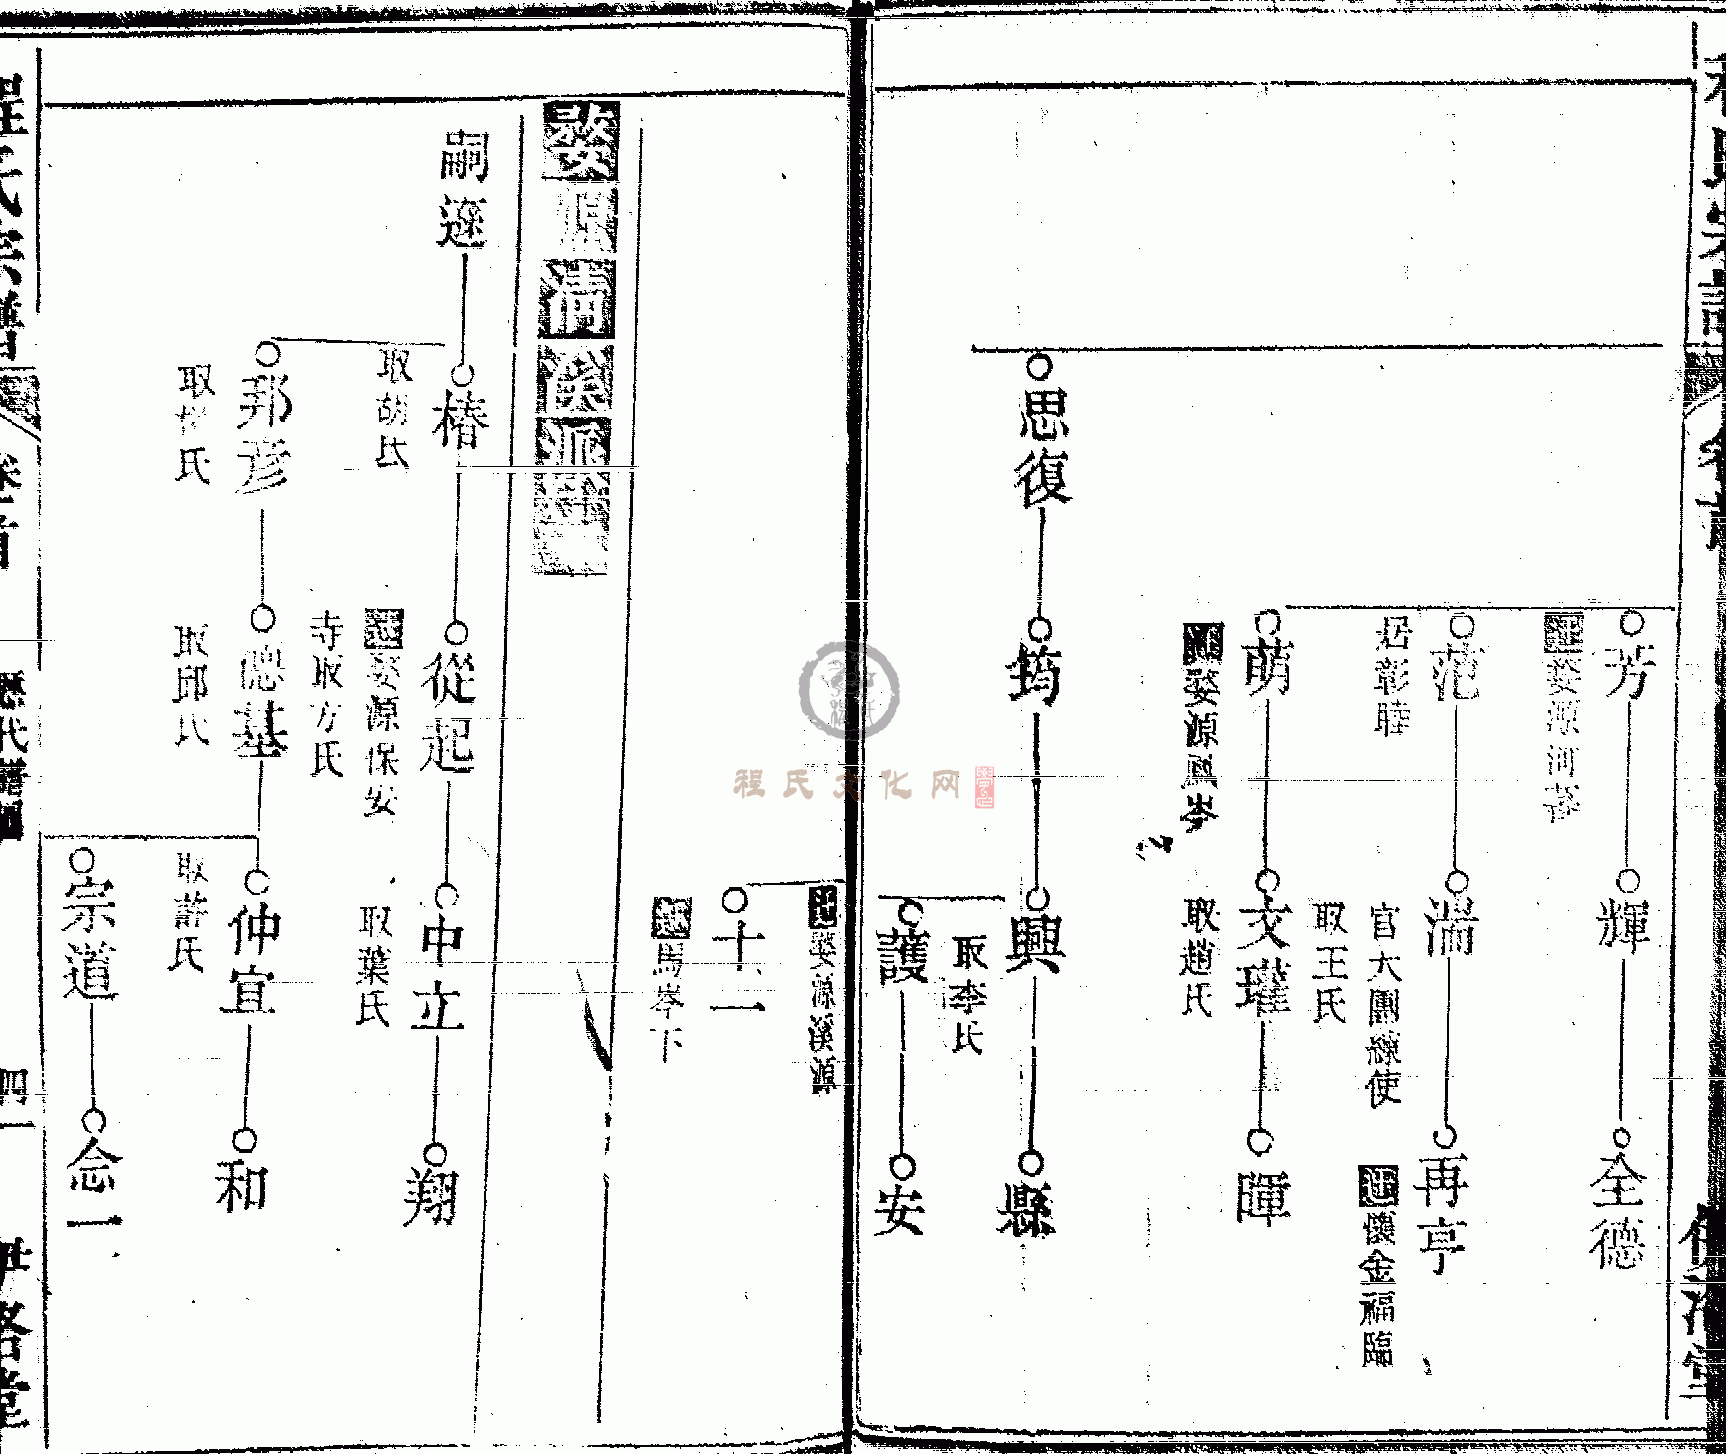 芳
遷婺源河
輝
全德
范
居彰睦
湍
官大團練使
取王氏
再亨
遷懷金福臨
萌
遷婺源鳳岑
文瓘
取趙氏
暉
思復
筠
興
取李氏
縣
護
安
遷婺源溪源
十一
遷馬岑下
婺源
派
嗣
椿
取胡氏
從起
遷婺源保安
寺取方氏
中立
取葉氏
翔
邦彥
取 氏
基
取邱氏
仲宜
取許氏
和
宗道
念一
程氏宗譜
卷首
歷代譜
四一
程氏文化网